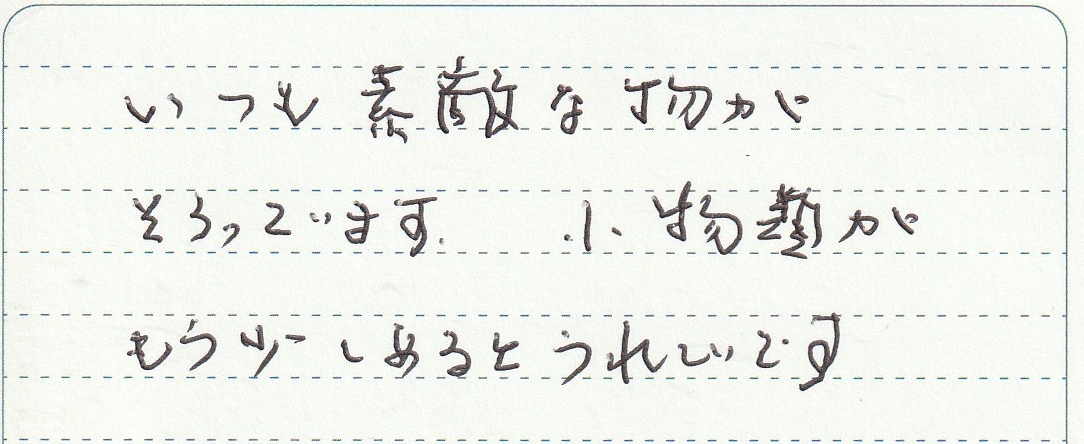 いつも素敵な物が
そろっています. 小物類が
もう少しあるとうれしいです